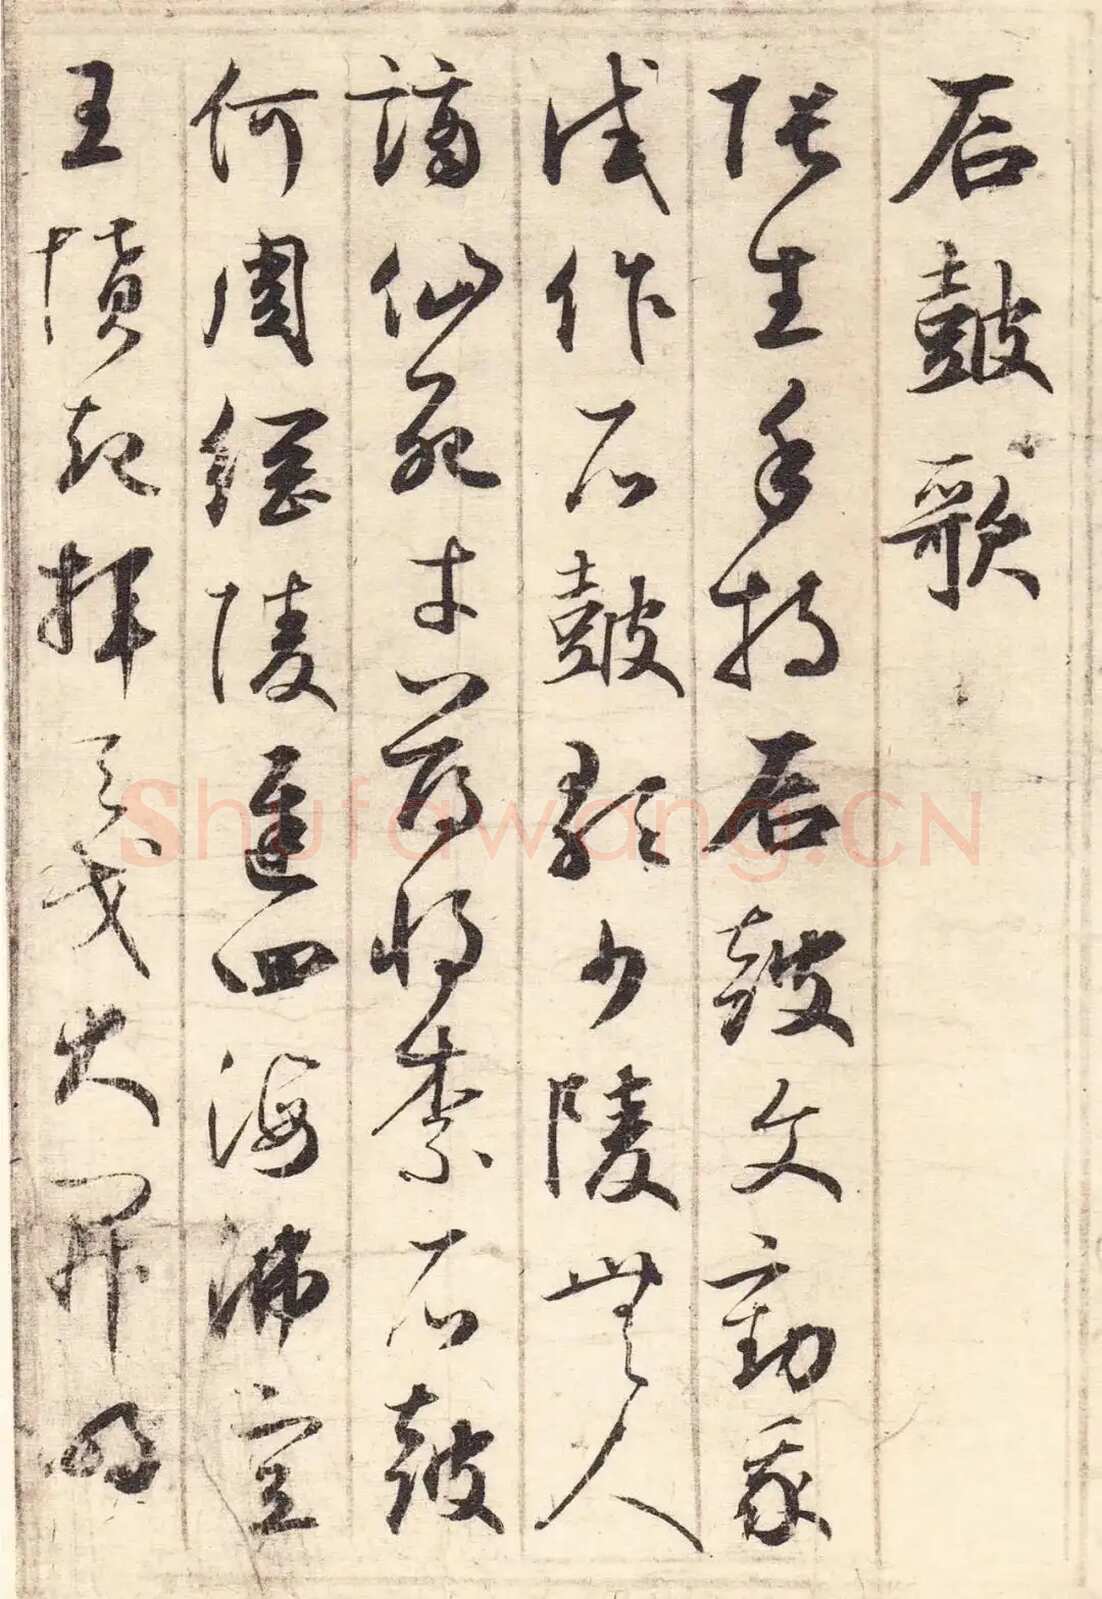 石鼓歌
張生手持石鼓文勸我
試作石鼓歌少陵無人
謫仙死才薄將奈石鼓
何周綱陵遲四海沸宣
王憤起揮天戈大開明
Shufawang.CN